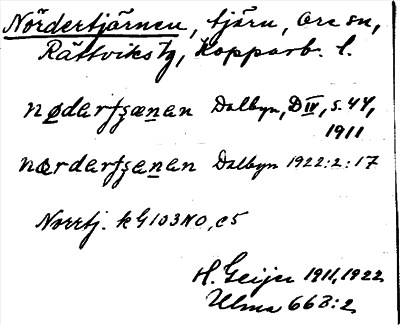 Nördertjärnen, tjärn, Ore sn,
Rättviks tg, Kopparb. l.
nødartʃænan Dalbyn, D IV, s. 44,
1911
nærdartʃænan Dalbyn 1922:2:17
Norrtj. kG103NO, c5
H. Geijer 1911, 1922
Ulma 663:2